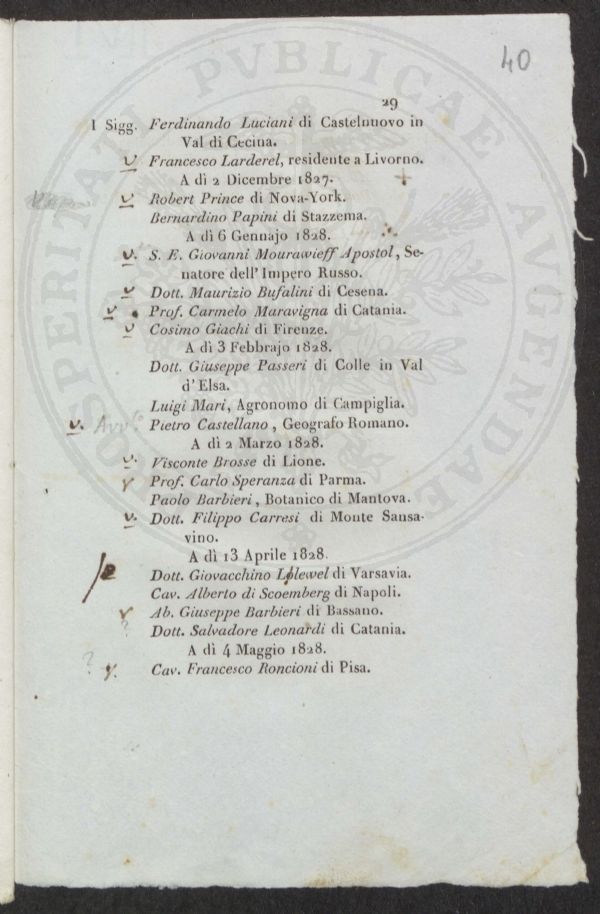 40
29
I Sigg. Ferdinando Luciani di Castelnuovo in
Val di Cecina.
v Francesco Larderel, residente a Livorno.
A dì 2 Dicembre 1827. +
v Robert Prince di Nova-York.
Bernardino Papini di Stazzema.
A dì 6 Gennajo 1828.
v. S. E. Giovanni Mourawieff Apostol, Se-
natore dell' Impero Russo.
v Dott. Maurizio Bufalini di Cesena.
v Prof. Carmelo Maravigna di Catania.
v Cosimo Giachi di Firenze.
A dì 3 Febbrajo 1828.
Dott. Giuseppe Passeri di Colle in Val
d'Elsa.
Luigi Mari, Agronomo di Campiglia.
v. Avv. Pietro Castellano, Geografo Romano.
A dì 2 Marzo 1828.
v. Visconte Brosse di Lione.
v Prof. Carlo Speranza di Parma.
Paolo Barbieri, Botanico di Mantova.
v. Dott. Filippo Carresi di Monte Sansa-
vino.
A dì 13 Aprile 1828.
/e Dott. Giovacchino Lolewel di Varsavia.
Cav. Alberto di Scoemberg di Napoli.
v Ab. Giuseppe Barbieri di Bassano.
? Dott. Salvadore Leonardi di Catania.
A dì 4 Maggio 1828.
? v. Cav. Francesco Roncioni di Pisa.
PROSPERITATI PVBLICAE AVGENDAE